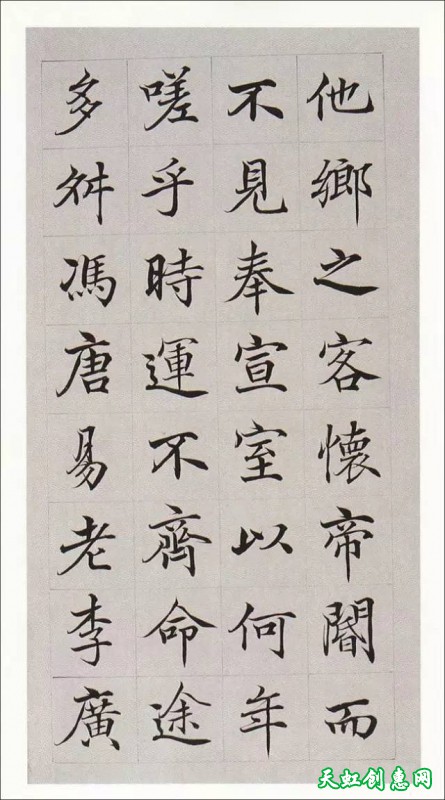 他鄉之客懷帝閽而
不見奉宣室以何年
嗟乎時運不齊命途
多舛馮唐易老李廣
天虹创惠网